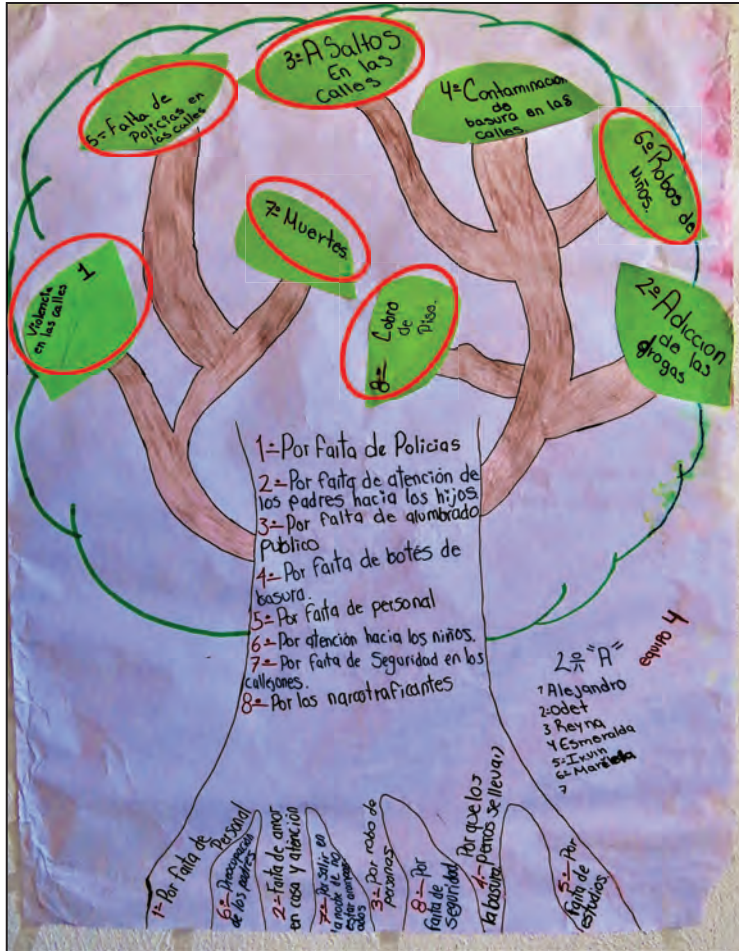 3º ASaltos
En las
Calles
5= Falta de
Policias en
las calles
4º Contaminacion
de
basura en las
calles
6º Robos de
Niños.
7º Muertes.
Violencia 1
en las calles
8º Cobro
de
Piso.
2º Adiccion
de las
drogas
1= Por faita de Policias
2= Por faita de atención de
los padres hacia los hijos.
3= Por falta de alumbrado
publico
4= Por faita de botés de
basura.
5= Por faita de personal
6= Por atención hacia los niños.
7= Por faita de Seguridad en los
callejones.
8= Por los narcotraficantes
2º "A"
equipo 4
1 Alejandro
2=Odet
3 Reyna
4 Esmeralda
5=Irvin
6=
7
1º Por faita de
Personal
6º Preocupación
de los padres
2= Faita de amor
en casa y atención
7= Por salir en
la noche de no
estar
3= Por robo de
personas
8= Por
faita de
seguridad
4= Por que los
perros se llevan
la basura
5= Por
faita de
estudios